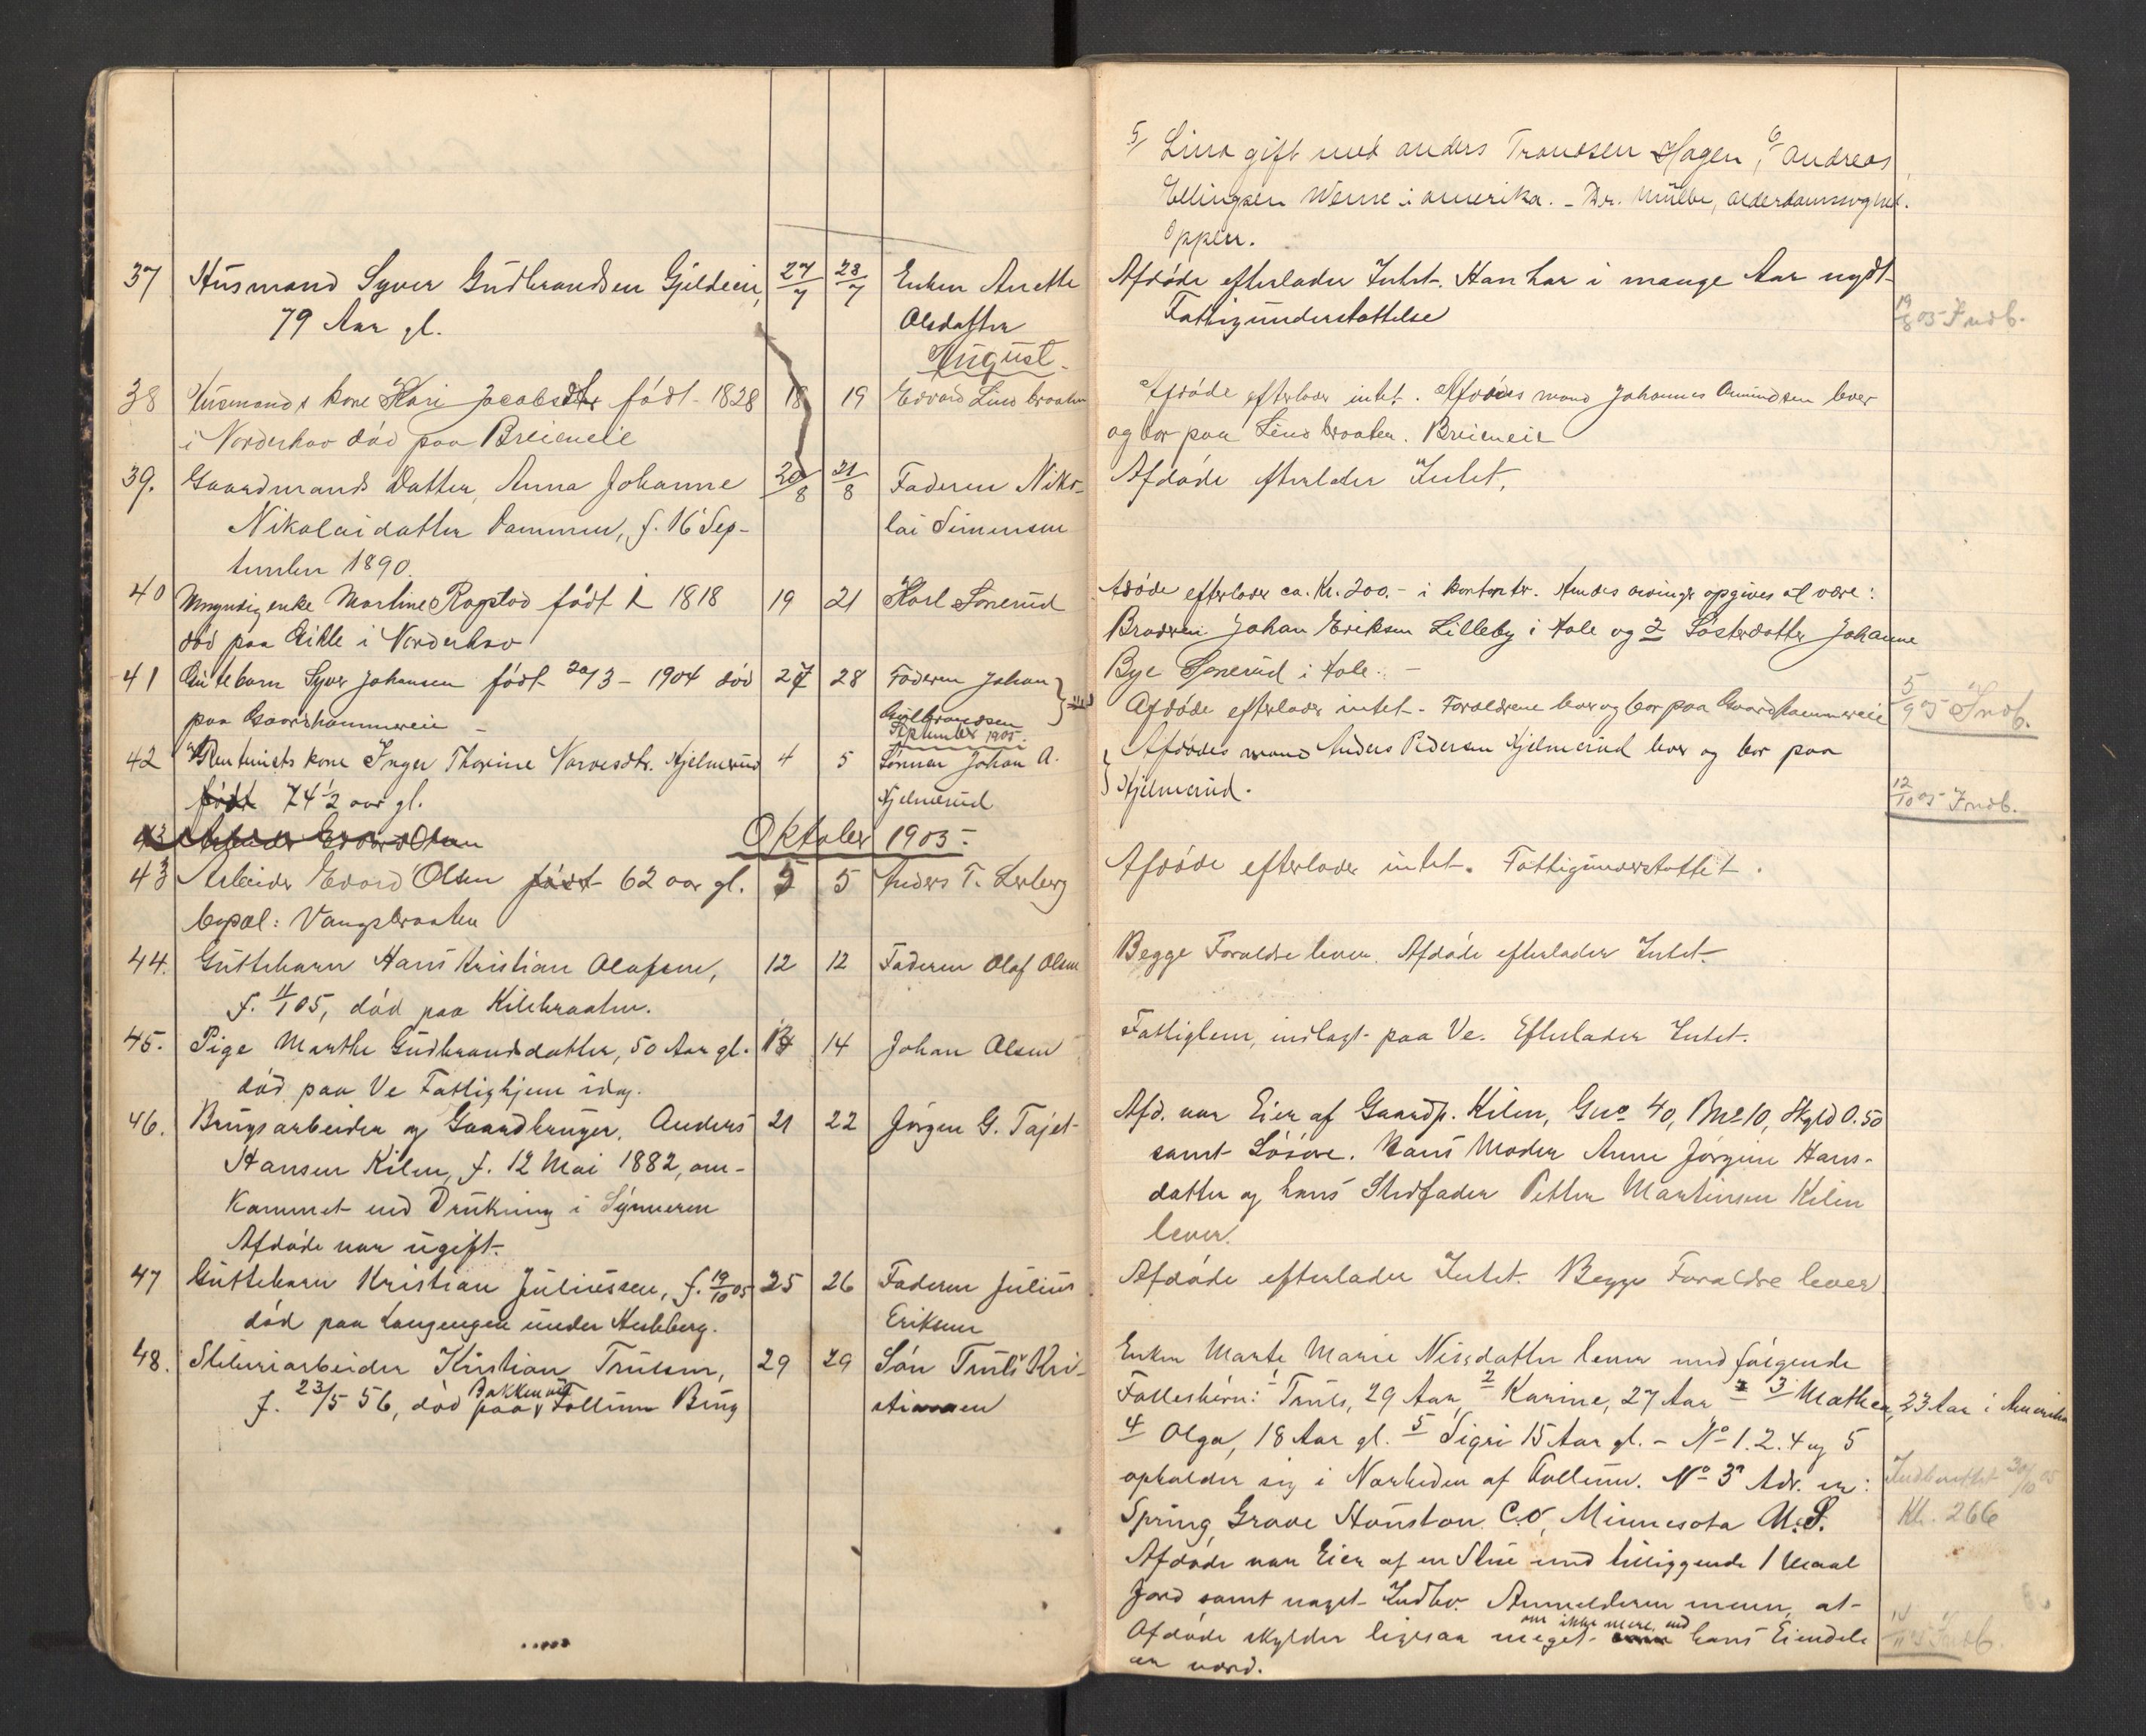 37 Husmand Syver Gudbrandsen Gjeldeeie, 27/7 28/7 Enken Anette
79 Aar gl. Olsdatter
August.
38 Husmands kone Kari Jacobsdtr født 1828 18 19 Edvard Lindbraaten
i Norderhov død paa Breieneie
39. Gaardmands Datter, Anna Johanne 20/8 21/8 Faderen Niko-
Nikolaidatter Dammen, f. 16 Sep- lai Simensen
tember 1890.
40 Umyndig enke Martine Rogstad født i 1818 19 21 Karl Sonerud
død paa Eikle i Norderhov
41 Guttebarn Syver Johansen født 20/3 - 1904 død 27 28 Faderen Johan
paa Gaardhammereie - Gulbrandsen
September 1905.
42 Rentenists kone Inger Thorine Narvesdtr. Hjelmerud 4 5 Sønnen Johan A.
født 74 1/2 aar gl. Hjelmerud
43 Arbeider Edvard Olsen Oktober 1905.
43 Arbeider Edvard Olsen født 62 aar gl. 5 5 Anders T. Lerberg
bopæl: Vangsbraaten
44. Guttebarn Hans Kristian Olafsen, 12 12 Faderen Olaf Olsen
f. 11/1 05, død paa Kilebraaten.
45. Pige Marthe Gudbrandsdatter, 50 Aar gl. 14 14 Johan Olsen
død paa Ve Fattighjem idag.
46. Brugsarbeider og Gaardbruger, Anders 21 22 Jørgen G. Tajet
Hansen Kilen, f. 12 Mai 1882, om-
kommet ved Drukning i Synneren
Afdøde var ugift.
47 Guttebarn Kristian Juliussen, f. 19/10 05 25 26 Faderen Julius
død paa Langengen under Heshberg. Eriksen
48. Sliberiarbeider Kristian Trulsen, 29 29 Søn Truls Kri-
f. 23/5 56, død paa Bakken ved Follum Brug stiansen
5/ Lina gift med Anders Trondsen Hagen, 6/ Andreas
Ellingsen Werne i Amerika. - Dr. Müller, alderdomssvaghed.
Oppen.
Afdøde efterlader Intet. Han har i mange Aar nydt
Fattigunderstøttelse 19/8 05 Indb.
Afdøde efterlader intet. Afdødes mand Johannes Amundsen lever
og bor paa Lindbraaten. Breieneie
Afdøde efterlader Intet.
Afdøde efterlader ca. Kr. 200.- i kontanter. Hendes arvinger opgives at være:
Broderen Johan Eriksen Lilleby i Hole og 2 Søsterdatter Johanne
Bye Sonerud i Hole. -
Afdøde efterlader intet - Forældrene lever og bor paa Gaardhammereie 5/9 05 Indb.
Afdødes mand Anders Pedersen Hjelmerud lever og bor paa
Hjelmerud. 12/10 05 Indb.
Afdøde efterlader intet. Fattigunderstøttet.
Begge Forældre lever. Afdøde efterlader Intet.
Fattiglem, indlagt paa Ve. Efterlader Intet.
Afd. var Eier af Gaardp. Kilen, Gno 40, Bno 10, Skyld 0.50
samt Løsøre. Hans Moder Anne Jørgine Hans-
datter og hans Stedfader Petter Martinsen Kilen
lever.
Afdøde efterlader Intet. Begge Forældre lever.
Enken Marte Marie Nilsdatter lever med følgende
Fællesbørn: 1 Truls, 29 Aar, 2 Karine, 27 Aar 3 Mathea, 23 Aar i Amerika
4 Olga, 18 Aar gl. 5 Sigri 15 Aar gl. - No 1. 2. 4 og 5
opholder sig i Nærheden af Follum. No 3s Adr. er: Indberettet 30/10 05
Spring Grove Houston C.o, Minnesota U.S. Kl. 266
Afdøde var Eier af en Stue med tilliggende 1 Maal
Jord samt noget Indbo. Anmelderen mener, at
Afdøde skylder ligesaa meget om ikke mere end hans Eiendele
er værd.